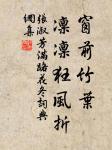 窗前竹葉
凜凜狂風折
張淑芳滿路花冬詞典
網集